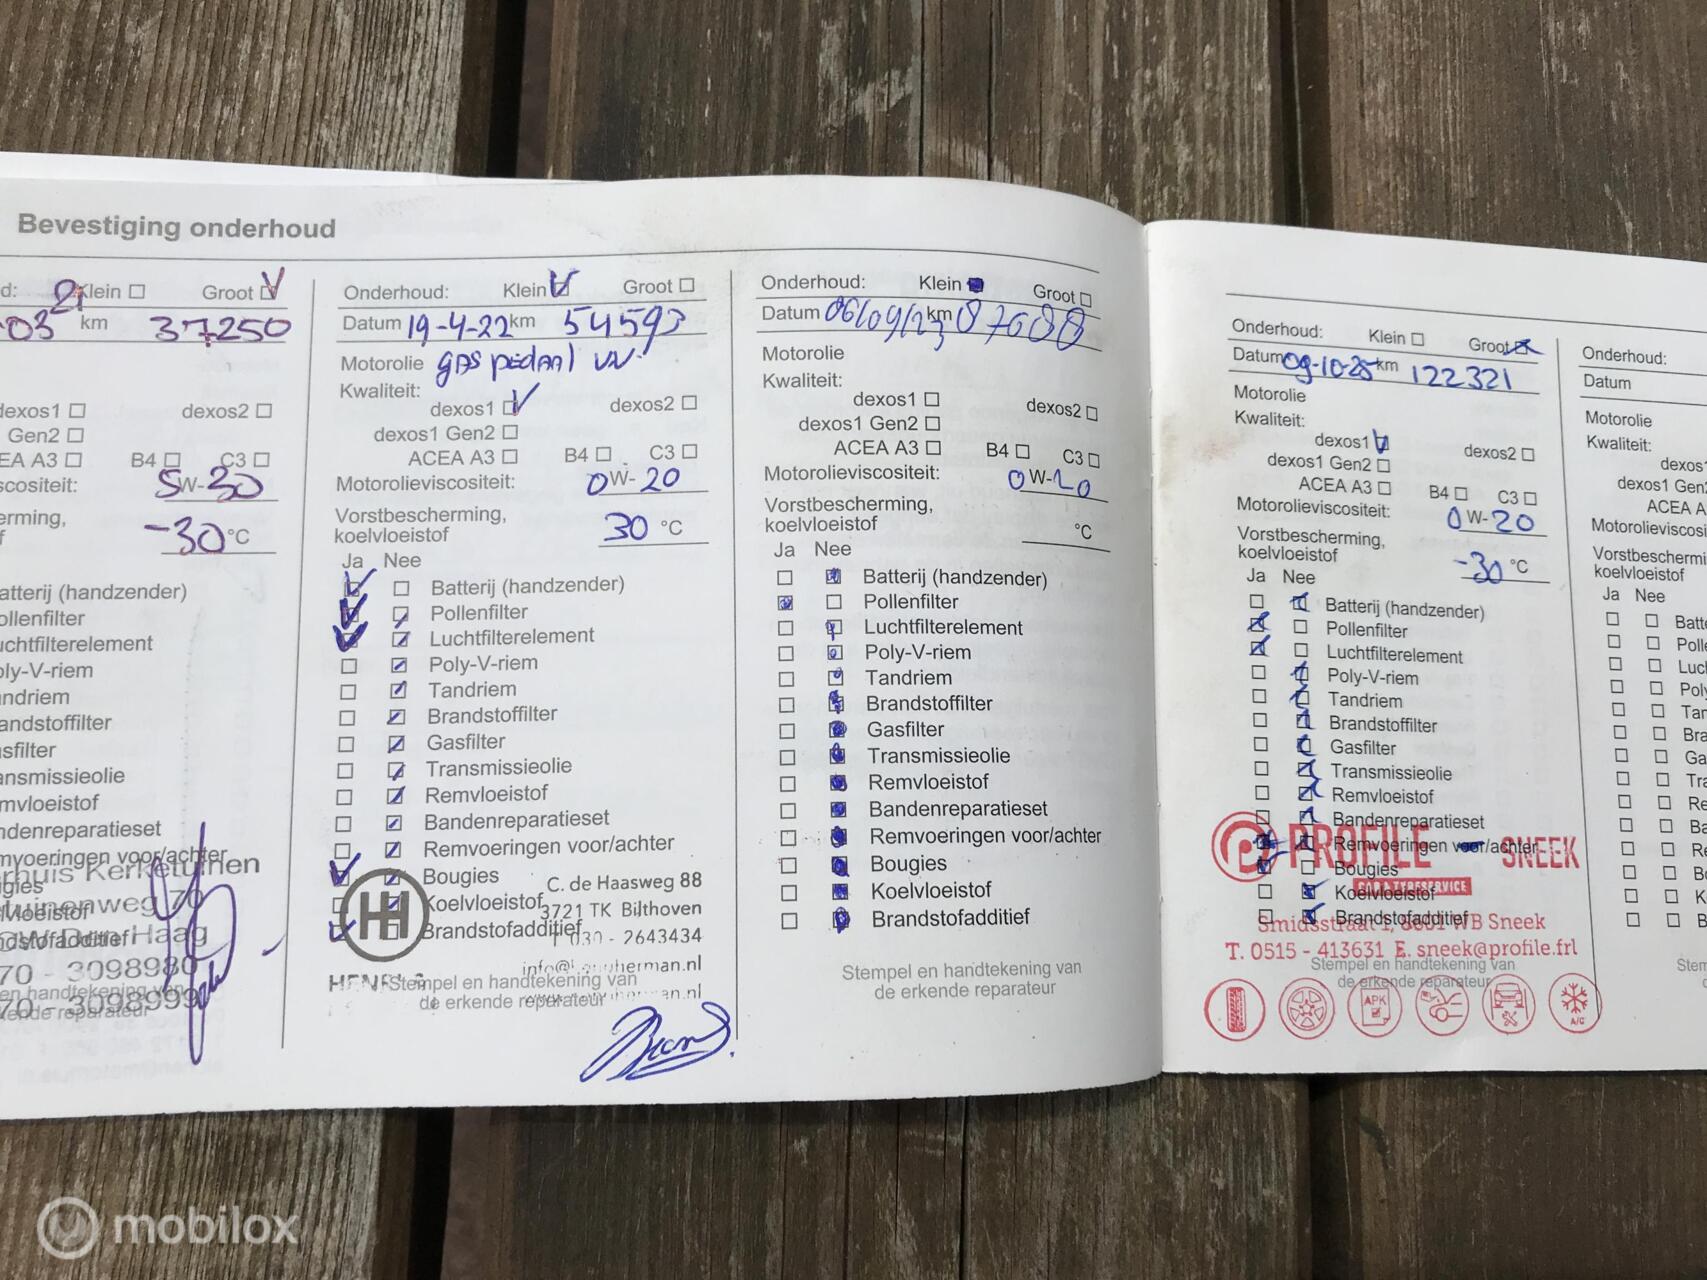 Bevestiging onderhoud
d: Klein Groot
-03 21 km 37250
dexos1 dexos2
Gen2
EA A3 B4 C3
scositeit: 5W-30
erming,
f -30 °C
atterij (handzender)
ollenfilter
uchtfilterelement
oly-V-riem
andriem
randstoffilter
asfilter
ansmissieolie
mvloeistof
ndenreparatieset
mvoeringen voor/achter
rhuis Kerketuinen
ugies
tuinenweg 70
vloeistof
Den Haag
ndstofadditief
70 - 3098980
en handtekening van
70 - 3098999
kende reparateur
Onderhoud: Klein Groot
Datum 19-4-22 km 54593
Motorolie gaspedaal vv.
Kwaliteit:
dexos1 dexos2
dexos1 Gen2
ACEA A3 B4 C3
Motorolieviscositeit: 0W-20
Vorstbescherming,
koelvloeistof 30 °C
Ja Nee
Batterij (handzender)
Pollenfilter
Luchtfilterelement
Poly-V-riem
Tandriem
Brandstoffilter
Gasfilter
Transmissieolie
Remvloeistof
Bandenreparatieset
Remvoeringen voor/achter
Bougies
Koelvloeistof
Brandstofadditief
HH
C. de Haasweg 88
3721 TK Bilthoven
T 030 - 2643434
Stempel en handtekening van
de erkende reparateur
Onderhoud: Klein Groot
Datum 06/09/23 km 87688
Motorolie
Kwaliteit:
dexos1 dexos2
dexos1 Gen2
ACEA A3 B4 C3
Motorolieviscositeit: 0W-20
Vorstbescherming,
koelvloeistof °C
Ja Nee
Batterij (handzender)
Pollenfilter
Luchtfilterelement
Poly-V-riem
Tandriem
Brandstoffilter
Gasfilter
Transmissieolie
Remvloeistof
Bandenreparatieset
Remvoeringen voor/achter
Bougies
Koelvloeistof
Brandstofadditief
Stempel en handtekening van
de erkende reparateur
Onderhoud: Klein Groot
Datum 09-10-25 km 122321
Motorolie
Kwaliteit:
dexos1 dexos2
dexos1 Gen2
ACEA A3 B4 C3
Motorolieviscositeit: 0W-20
Vorstbescherming,
koelvloeistof -30 °C
Ja Nee
Batterij (handzender)
Pollenfilter
Luchtfilterelement
Poly-V-riem
Tandriem
Brandstoffilter
Gasfilter
Transmissieolie
Remvloeistof
Bandenreparatieset
Remvoeringen voor/achter
PROFILE SNEEK
Bougies
Koelvloeistof
Brandstofadditief
Smidsstraat 1, 8601 WB Sneek
T. 0515 - 413631 E. sneek@profile.frl
Stempel en handtekening van
de erkende reparateur
APK
A/C
Onderhoud:
Datum
Motorolie
Kwaliteit:
dexos1
dexos1 Gen2
ACEA A
Motorolieviscosi
Vorstbeschermi
koelvloeistof
Ja Nee
Batte
Polle
Luch
Poly
Tan
Bra
Ga
Tra
Re
Ba
Re
Bo
K
B
Stem
d
mobilox